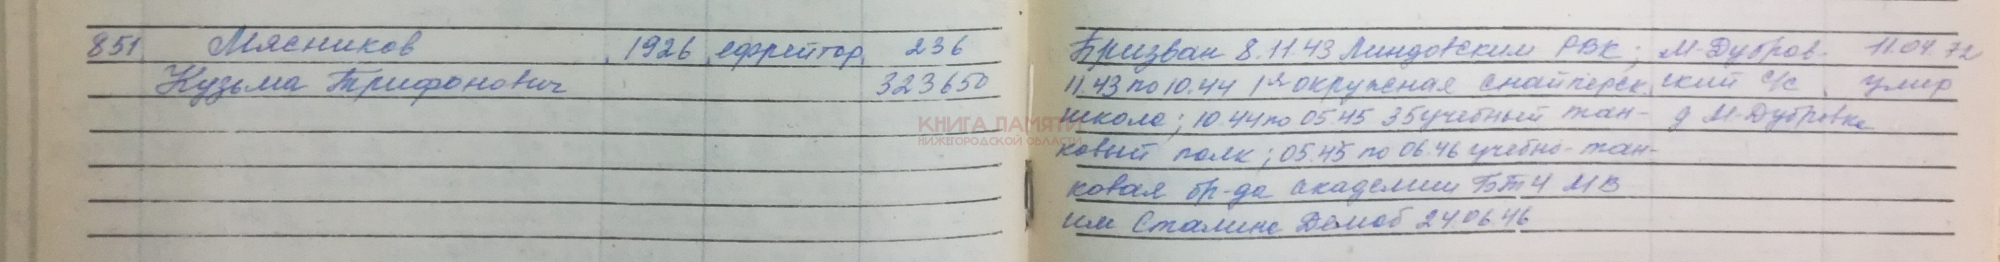 851 Мясников 1926 ефрейтор 236
Кузьма Трифонович 323650
Призван 8.11.43 Линдовским РВК; М-Дубров- 11.04.72
11.43 по 10.44 1ая окружная снайперск. ский с/с умер
школа; 10.44 по 05.45 35 учебный тан- д М-Дубровка
ковый полк; 05.45 по 06.46 учебно-тан-
ковая бр-да академии БТ и МВ
им Сталина Демоб 24 06 46
КНИГА ПАМЯТИ
НИЖЕГОРОДСКОЙ ОБЛАСТИ